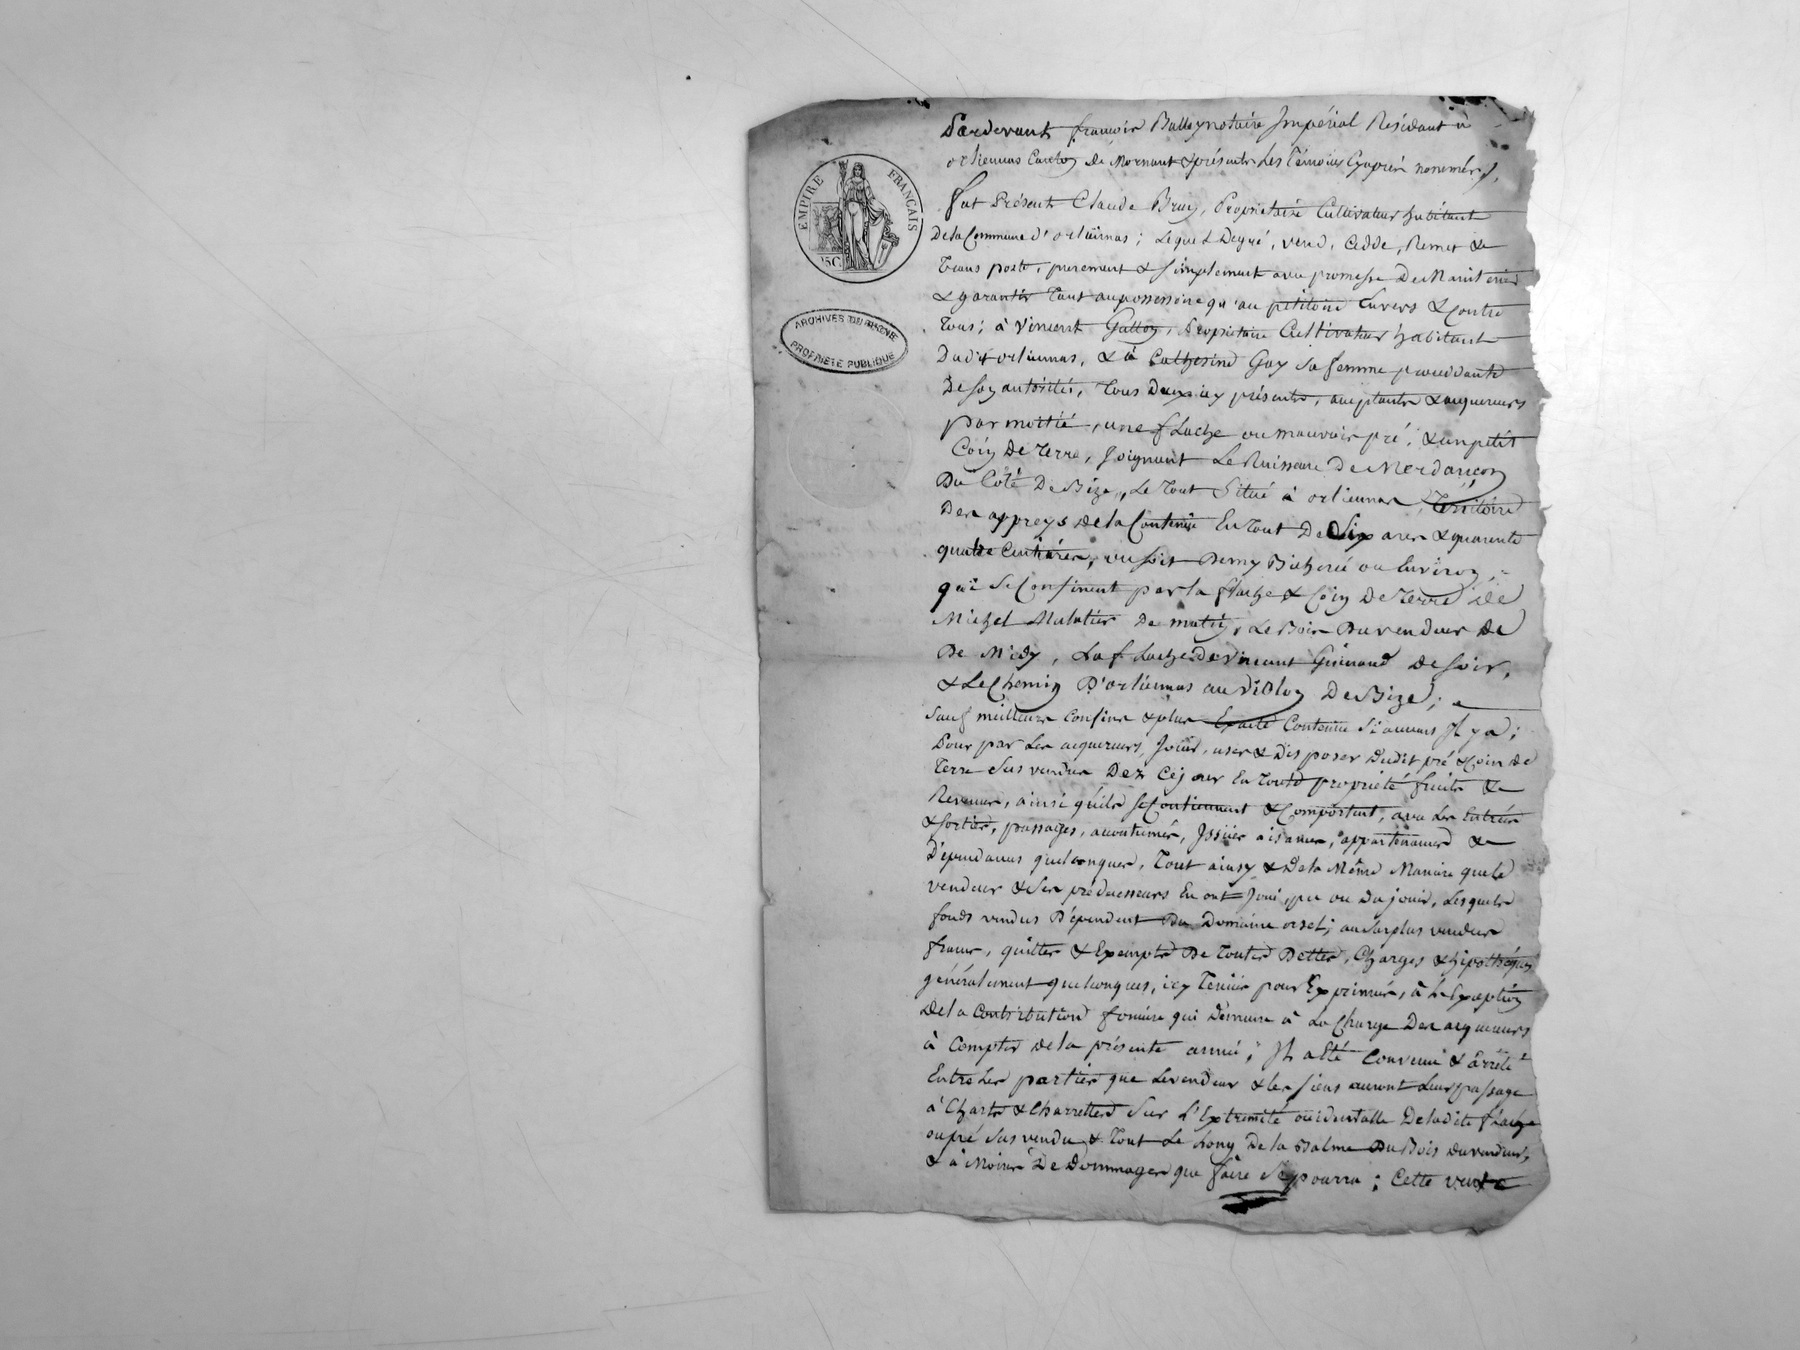 EMPIRE FRANÇAIS
ARCHIVES DU RHONE
PROPRIÉTÉ PUBLIQUE
Pardevant françois Balley notaire Impérial Résidant à
orlienas Canton de Mornant & présents les témoins Cyaprès nommés,
fut Présent Claude Bruy, Propriétaire Cultivateur habitant
de la Commune d'orliénas ; Lequel Degré, vend, Cedde, Remet &
transporte, purement & simplement avec promesse De Maintenir
& garantir tant au possessoire qu'au petitoire Envers & Contre
tous ; à Vincent Gallon, Propriétaire Cultivateur habitant
Dudit orliennas, & à Catherine Guy sa femme procedante
De son autorité, tous Deux icy présents, acceptants & acquereurs
par moitié, une flache ou mauvais pré, & un petit
Coin De terre, Joignant Le Ruisseau De Merdançon
Du Côté De Bize, Le tout Situé à orliennas, Térritoire
Des appreys de la Contenüe En tout De Six ares & quarente
quatre Centiares, ou soit Demy Bicherée ou Environ,
qui Se Confinent par la flache & Coin De terre de
Michel Mulatier De matin, Le Bois Du vendeur De
De Midy, La flache de Vincent Guinand De soir,
& Le Chemin D'orliennas au violon De Bize ;
Sauf meilleurs Confins & plus Exacte Contenüe Si aucuns Il y a ;
Pour par Les acquereurs, Jouir, user & Disposer Dudit pré & Coin de
terre Sus vendus Dez Cejour En toute propriété fruits &
Revenus, ainsi qu'ils se Contiennent & Comportent, avec Les Entrées
& sorties, passages, acoutumés, Issües aisances, appartenances &
Dépendances quelconques, tout ainsy & De la Même Maniere que Le
vendeur & Ses prédecesseurs En ont Joui, pu ou Du jouir, Lesquels
fonds vendus Dépendent Du Domaine orsel ; au Surplus vendus
francs, quittes & Exempts De toutes Dettes, Charges & hipothéques
générallement quelconques, icy tenües pour Exprimées, à L'Exception
De la Contribution fonciere qui Démeure à La Charge Des acquereurs
à Compter de la présente année ; Il a Eté Convenu & arrêté
Entre Les parties que Le vendeur & les siens auront Leur passage
à Chars & Charrettes Sur L'Extremité occidentalle De ladite flache
ou pré Sus vendu & tout Le Long De la Balme Du Bois du vendeur,
& à Moins De Dommages que faire Se pourra ; Cette vente